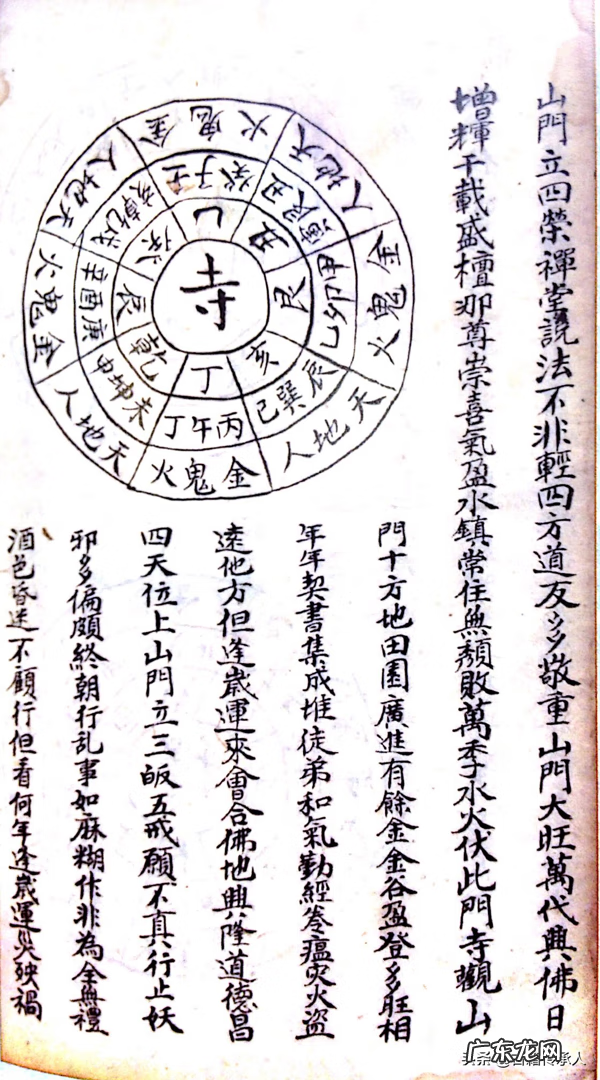 山門立四榮禪堂說法不非輕四方道友多敬重山門大旺萬代興佛日
增輝千載盛檀那尊崇喜氣盈水鎮常住無頹敗萬季水火伏此門寺觀山
門十方地田園廣進有餘金金谷盈登多旺相
年年契書集成堆徒弟和氣勤經卷瘟灾火盜
遠他方但逢歲運來會合佛地興隆道德昌
四天位上山門立三皈五戒願不真行止妖
邪多偏頗終朝行乱事如麻糊作非為全無禮
酒色昏迷不顧行但看何年逢歲運災殃禍
寺
丑
艮
亥
丁
乾
辰
壬子癸
甲卯乙
辰巽巳
丙午丁
未坤申
庚酉辛
戌乾亥
金鬼火
天地人
金鬼火
天地人
金鬼火
天地人
金鬼火
天地人
广东龙网